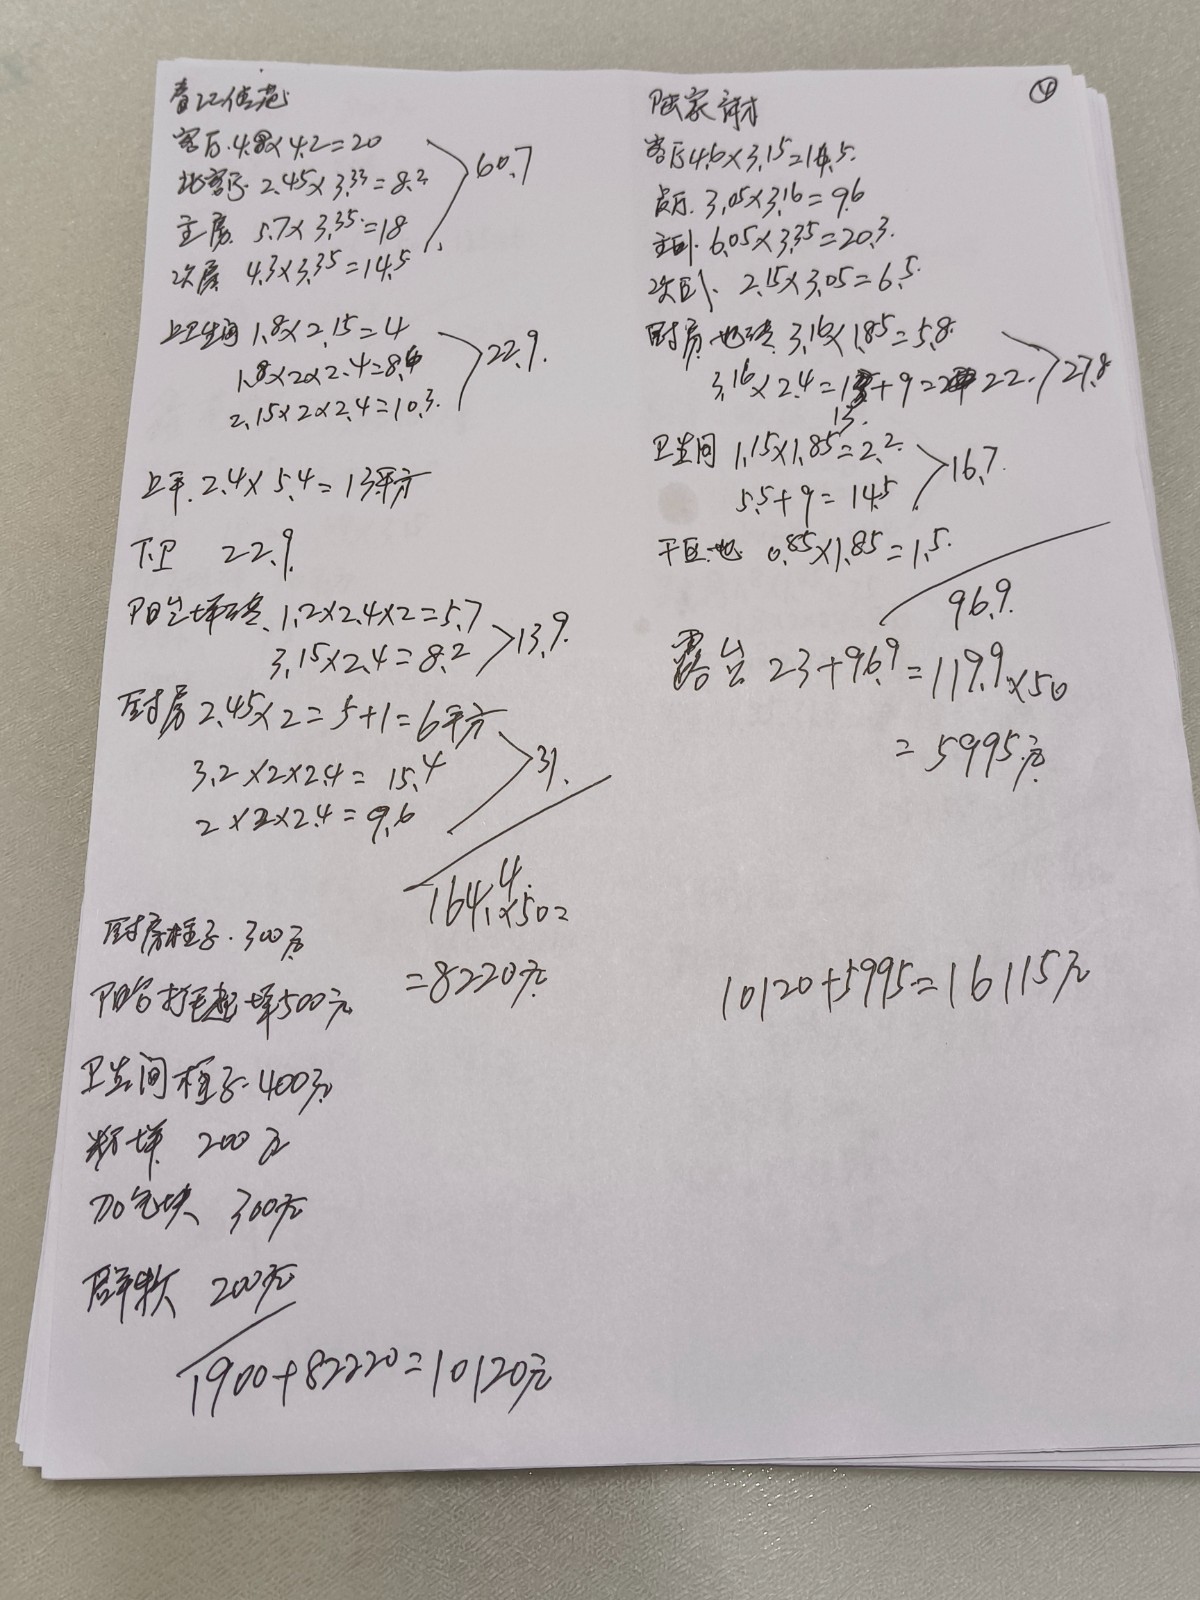 春江佳苑
客厅.4.8×4.2=20
北客厅.2.45×3.33=8.2
主房.5.7×3.35=18
次房 4.3×3.35=14.5
60.7
上卫生间 1.8×2.15=4
1.8×2×2.4=8.6
2.15×2×2.4=10.3.
22.9.
上平.2.4×5.4=13平方
下卫 22.9.
阳台墙砖.1.2×2.4×2=5.7
3.15×2.4=8.2
13.9.
厨房2.45×2=5+1=6平方
3.2×2×2.4=15.4
2×2×2.4=9.6
31.
164.4.×50=
=8220元
厨房柱子.300元
阳台打毛起墙500元
卫生间柱子.400元
粉墙 200元
加气块 300元
200元
1900+82220=10120元
④
陆家
客厅4.6×3.15=14.5.
3.05×3.16=9.6
主卧.6.05×3.35=20.3.
次卧.2.15×3.05=6.5.
厨房.地砖.3.16×1.85=5.8.
3.16×2.4=15+9=22.
13.
27.8
卫生间 1.15×1.85=2.2.
5.5+9=14.5
16.7.
干区.地.0.85×1.85=1.5.
96.9.
露台 23+96.9=119.9.×50
=5995.元
10120+5995=16115元